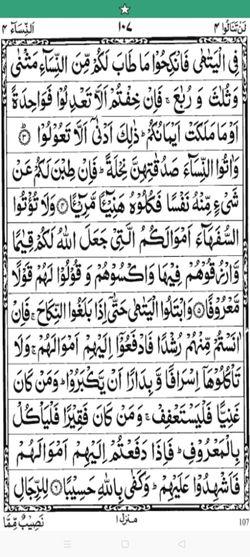 لن تنالوا ۴
۱۰۷
النساء ۴
فِي الْيَتٰمٰى فَانْكِحُوْا مَا طَابَ لَكُمْ مِّنَ النِّسَآءِ مَثْنٰى
وَثُلٰثَ وَرُبٰعَ ۚ فَاِنْ خِفْتُمْ اَلَّا تَعْدِلُوْا فَوَاحِدَةً
اَوْ مَا مَلَكَتْ اَيْمَانُكُمْ ؕ ذٰلِكَ اَدْنٰۤى اَلَّا تَعُوْلُوْا ؕ﴿۳﴾
وَاٰتُوا النِّسَآءَ صَدُقٰتِهِنَّ نِحْلَةً ؕ فَاِنْ طِبْنَ لَكُمْ عَنْ
شَيْءٍ مِّنْهُ نَفْسًا فَكُلُوْهُ هَنِيْٓئًا مَّرِيْٓئًا ﴿۴﴾ وَلَا تُؤْتُوا
السُّفَهَآءَ اَمْوَالَكُمُ الَّتِيْ جَعَلَ اللّٰهُ لَكُمْ قِيٰمًا
وَّارْزُقُوْهُمْ فِيْهَا وَاكْسُوْهُمْ وَقُوْلُوْا لَهُمْ قَوْلًا
مَّعْرُوْفًا ﴿۵﴾ وَابْتَلُوا الْيَتٰمٰى حَتّٰۤى اِذَا بَلَغُوا النِّكَاحَ ۚ فَاِنْ
اٰنَسْتُمْ مِّنْهُمْ رُشْدًا فَادْفَعُوْۤا اِلَيْهِمْ اَمْوَالَهُمْ ۚ وَلَا
تَاْكُلُوْهَاۤ اِسْرَافًا وَّبِدَارًا اَنْ يَّكْبَرُوْا ؕ وَمَنْ كَانَ
غَنِيًّا فَلْيَسْتَعْفِفْ ۚ وَمَنْ كَانَ فَقِيْرًا فَلْيَاْكُلْ
بِالْمَعْرُوْفِ ؕ فَاِذَا دَفَعْتُمْ اِلَيْهِمْ اَمْوَالَهُمْ
فَاَشْهِدُوْا عَلَيْهِمْ ؕ وَكَفٰى بِاللّٰهِ حَسِيْبًا ﴿۶﴾ لِلرِّجَالِ
نَصِيْبٌ مِّمَّا
منزل ۱
107